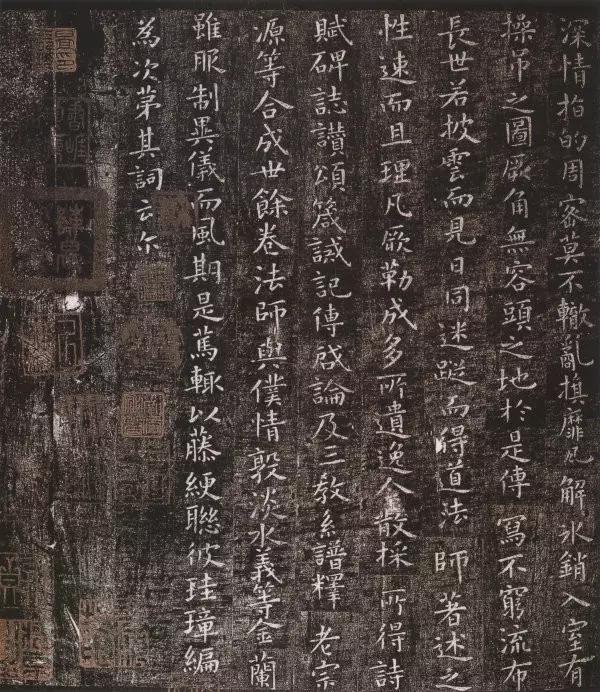 深情指的周密莫不轍亂旗靡瓦解氷銷入室有
操吊之圖厥角無容頭之地於是傳寫不窮流布
長世若披雲而見日同迷蹤而得道法師著述之
性速而且理凡厥勒成多所遺逸今散採所得詩
賦碑誌讚頌箴誡記傳啟論及三教系譜釋老宗
源等合成世餘卷法師與僕情敦淡水義等金蘭
雖服制異儀而風期是篤輒以藤綆聯彼珪璋編
為次第其詞云尒